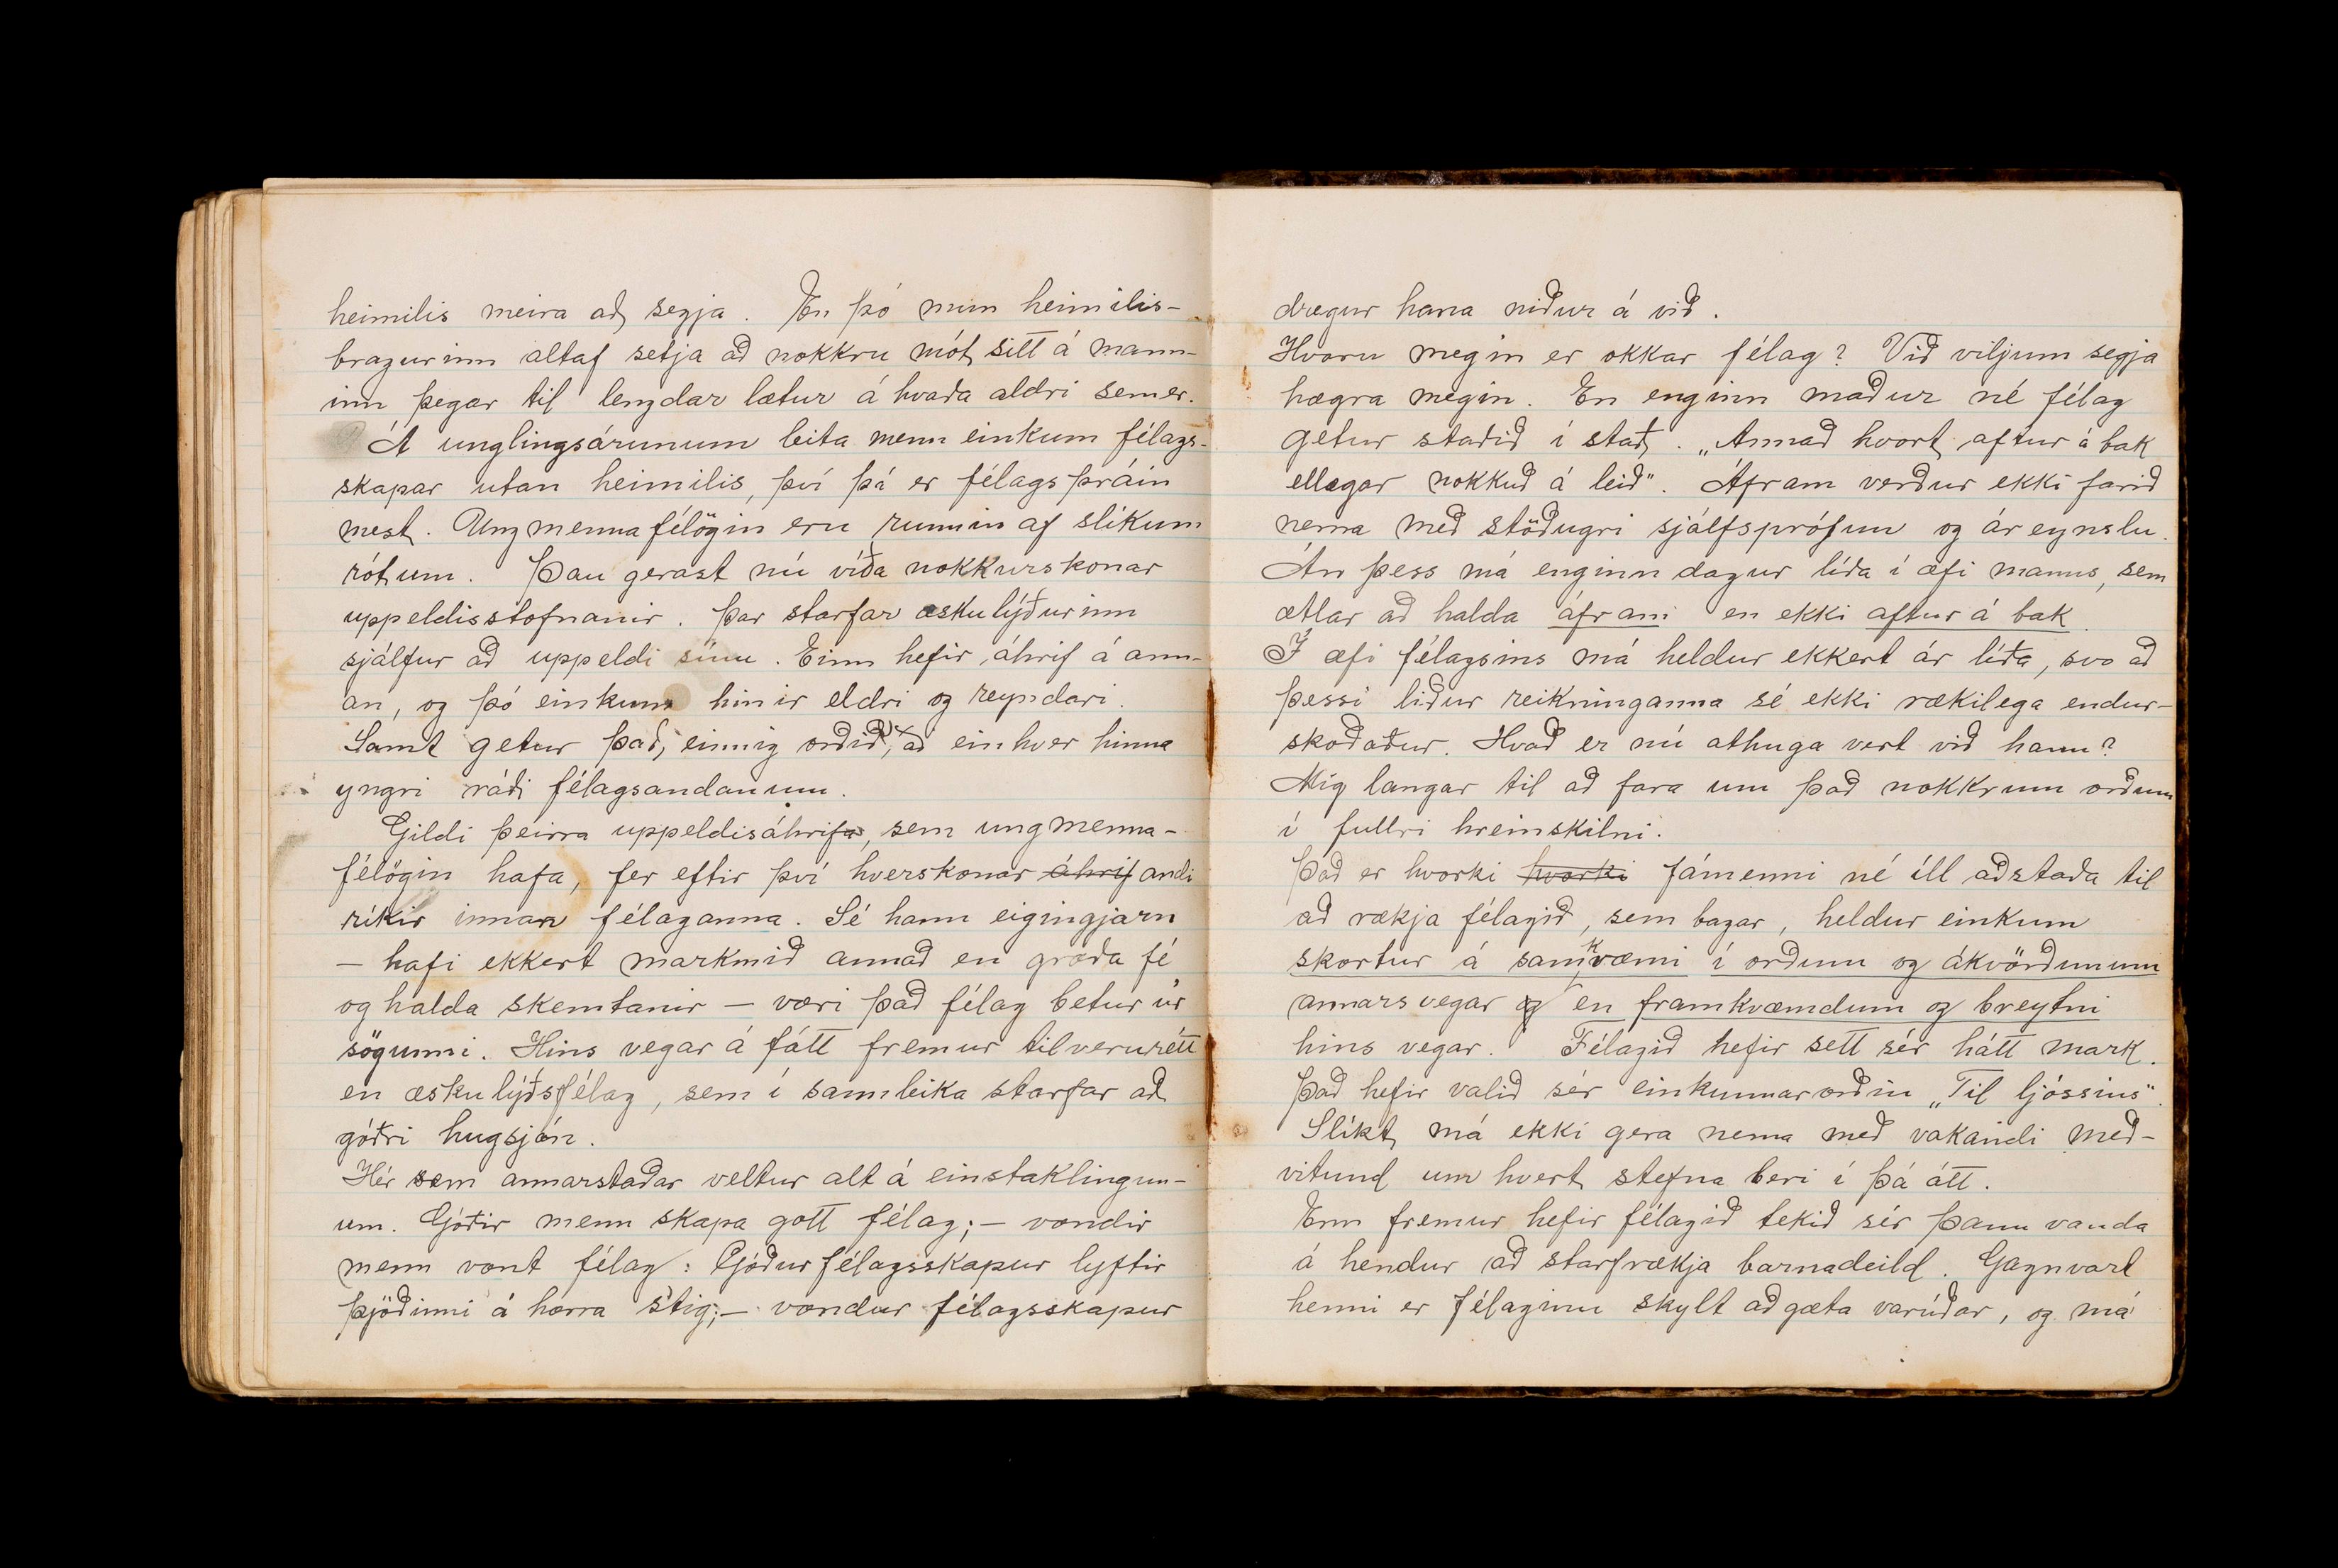 heimilis meira að segja. En þó mun heimilis-
bragurinn altaf setja að nokkru mót sitt á mann-
inn þegar til lengdar lætur á hvaða aldri sem er.
Á unglingsárunum leita menn einkum félags-
skapar utan heimilis, því þá er félagsþráin
mest. Ungmennafélögin eru runnin af slíkum
rótum. Þau gerast nú víða nokkurskonar
uppeldisstofnanir. Þar starfar æskulýðurinn
sjálfur að uppeldi sínu. Einn hefir áhrif á ann-
an, og þó einkum hinir eldri og reyndari.
Samt getur það, einnig orðið, að einhver hinna
yngri ráði félagsandanum.
Gildi þeirra uppeldisáhrifa, sem ungmenna-
félögin hafa, fer eftir því hverskonar áhrif andi
ríkir innan félaganna. Sé hann eigingjarn
— hafi ekkert markmið annað en græða fé
og halda skemtanir — væri það félag betur úr
sögunni. Hins vegar á fátt fremur tilverurétt
en æskulýðsfélag, sem í sannleika starfar að
góðri hugsjón.
Hér sem annarstaðar veltur alt á einstaklingun-
um. Góðir menn skapa gott félag; — vondir
menn vont félag: Góður félagsskapur lyftir
þjóðinni á hærra stig; — vondur félagsskapur
dregur hana niður á við.
Hvoru megin er okkar félag? Við viljum segja
hægra megin. En enginn maður né félag
getur staðið í stað. „Annað hvort aftur á bak
ellegar nokkuð á leið". Áfram verður ekki farið
nema með stöðugri sjálfsprófun og áreynslu.
Án þess má enginn dagur líða í æfi manns, sem
ætlar að halda áfram en ekki aftur á bak.
Í æfi félagsins má heldur ekkert ár líða, svo að
þessi liður reikninganna sé ekki rækilega endur-
skoðaður. Hvað er nú athuga vert við hann?
Mig langar til að fara um það nokkrum orðum
í fullri hreinskilni.
Það er hvorki hvorki fámenni né ill aðstaða til
að rækja félagið, sem bagar, heldur einkum
skortur á samkvæmi í orðum og ákvörðunum
annars vegar og en framkvæmdum og breytni
hins vegar. Félagið hefir sett sér hátt mark.
Það hefir valið sér einkunnarorðin „Til ljóssins".
Slíkt má ekki gera nema með vakandi með-
vitund um hvert stefna beri í þá átt.
Enn fremur hefir félagið tekið sér þann vanda
á hendur að starfrækja barnadeild. Gagnvart
henni er félaginu skylt að gæta varúðar, og má